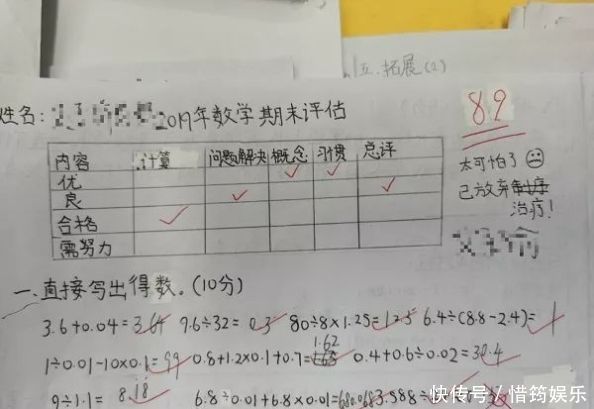 五.拓展(2)
姓名:
2019年数学期末评估
89
内容 计算 问题解决 概念 习惯 总评
优
良
合格
需努力
太可怕了
已放弃
治疗!
一、直接写出得数。(10分)
3.6+0.04=3.64 9.6÷32=0.3 80÷8×1.25=12.5 6.4÷(8.8-2.4)=1
1÷0.01-10×0.1=99 0.8+1.2×0.1+0.7=1.62 0.4+0.6÷0.02=30.4
9÷1.1=8.18 6.8÷0.01+6.8×0.01=680.068 3.888÷
快传号/惜筠娱乐